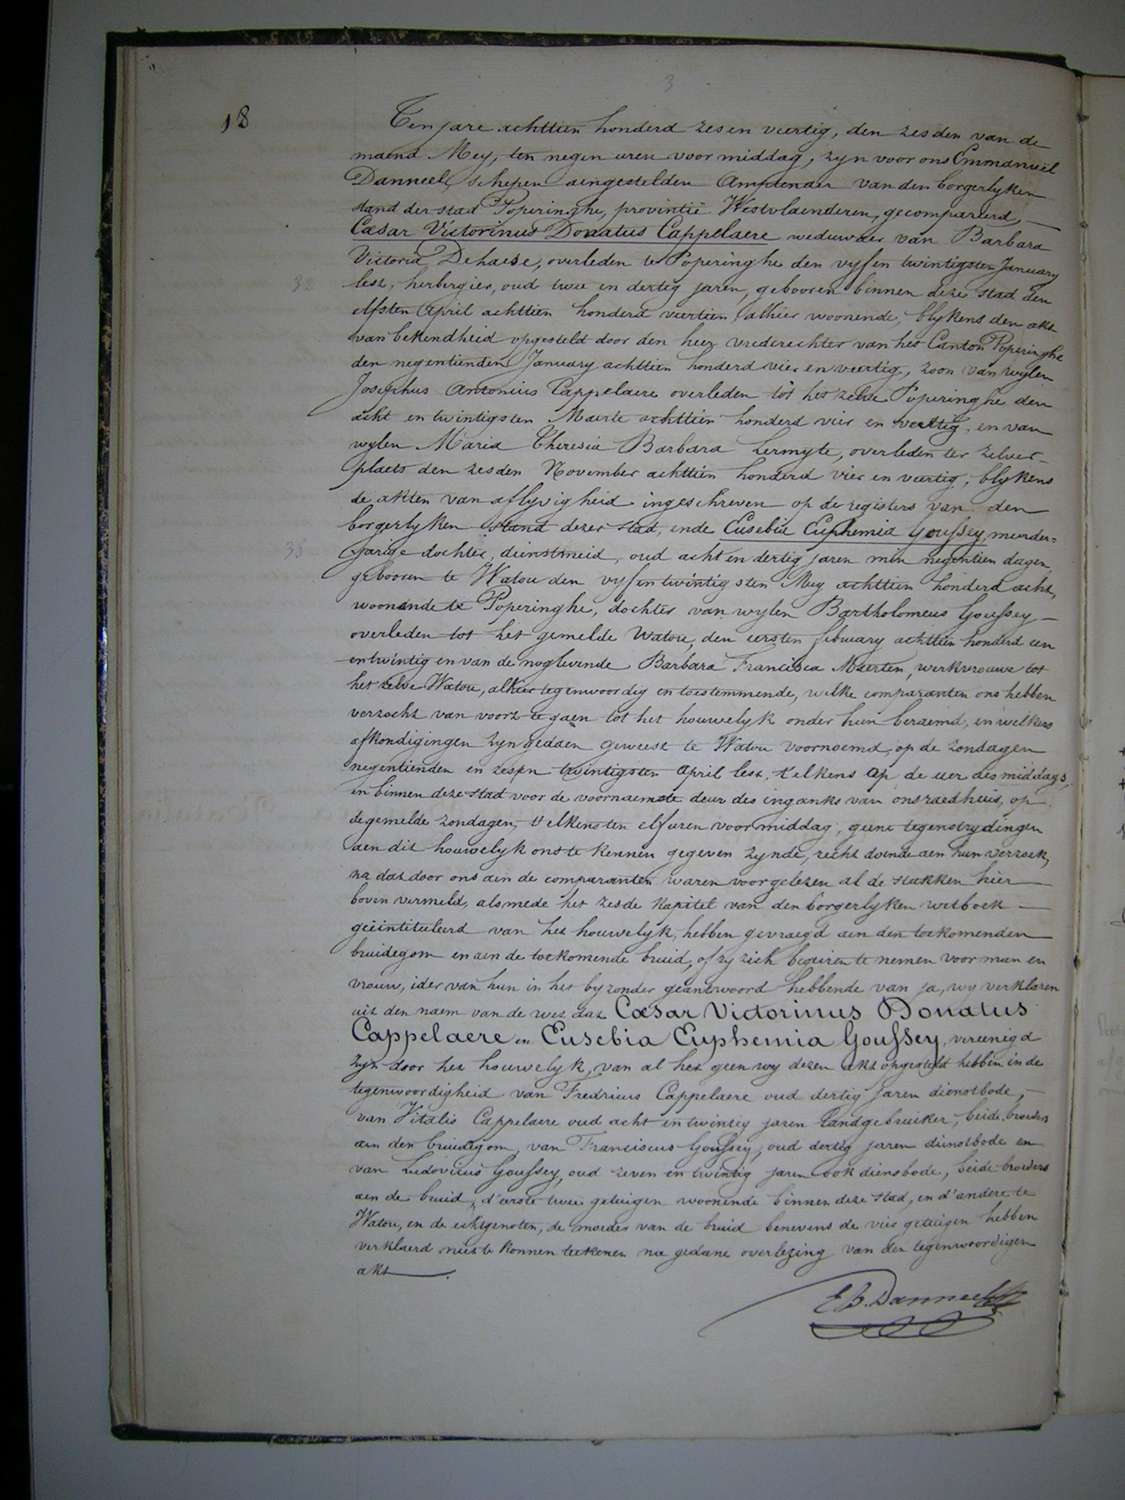 3
18
Ten jare achttien honderd zes en veertig, den zesden van de
maend Mey, ten negen uren voor middag, zyn voor ons Emmanuel
Danneel, schepen aengestelden Amptenaer van den borgerlyken
stand der stad Poperinghe, provintie Westvlaenderen, gecompareerd,
Cæsar Victorinus Donatus Cappelaere weduwaer van Barbara
Victoria Dehaese, overleden te Poperinghe den vyf en twintigsten January
lest, herbergier, oud twee en dertig jaren, gebooren binnen deze stad den
32
elfsten April achttien honderd veertien, alhier woonende, blykens den akt
van bekendheid opgesteld door den heer vrederechter van het Canton Poperinghe
den negentienden January achttien honderd vier en veertig, zoon van wylen
Josephus Antonius Cappelaere overleden tot het zelve Poperinghe den
acht en twintigsten Maerte achttien honderd vier en veertig, en van
wylen Maria Theresia Barbara Lermyte, overleden ter zelver
plaets den zesden November achttien honderd vier en veertig, blykens
de akten van aflyvigheid ingeschreven op de registers van den
borgerlyken stand dezer stad, ende Eusebia Euphemia Goussey, meerder-
38
jarige dochter, dienstmeid, oud acht en dertig jaren min negentien dagen,
gebooren te Watou den vyf en twintigsten Mey achttien honderd acht,
woonende te Poperinghe, dochter van wylen Bartholomeus Goussey
overleden tot het gemelde Watou, den eersten february achttien honderd een
en twintig en van de noglevende Barbara Francisca Maerten, werkvrouwe tot
het zelve Watou, alhier tegenwoordig en toestemmende, welke comparanten ons hebben
verzocht van voort te gaen tot het houwelyk onder hun beraemd, en welkers
afkondigingen zyn gedaen geweest te Watou voornoemd, op de zondagen
negentienden en zes en twintigsten April lest, telkens op de uer des middags,
en binnen deze stad voor de voornaemste deur des ingangs van ons raedhuis, op
de gemelde zondagen, telkens ten elf uren voormiddag, geene tegenstrydingen
aen dit houwelyk ons te kennen gegeven zynde, recht doende aen hun verzoek,
na dat door ons aen de comparanten waren voorgelezen al de stukken hier
boven vermeld, alsmede het zesde kapitel van den borgerlyken wetboek
geïntituleerd van het houwelyk, hebben gevraegd aen den toekomenden
bruidegom en aen de toekomende bruid, of zy zich begeiren te nemen voor man en
vrouw, ider van hun in het byzonder geantwoord hebbende van ja, wy verklaren
uit den naem van de wet dat Cæsar Victorinus Donatus
Cappelaere en Eusebia Euphemia Goussey, vereenigd
zyn door het houwelyk, van al het geen wy dezen akt opgesteld hebben in de
tegenwoordigheid van Fredricus Cappelaere oud dertig jaren dienstbode,
van Vitalis Cappelaere oud acht en twintig jaren landgebruiker, beide broeders
aen den bruidegom, van Franciscus Goussey, oud dertig jaren dienstbode en
van Ludovicus Goussey, oud zeven en twintig jaren ook dienstbode, beide broeders
aen de bruid, d'eerste twee getuigen woonende binnen deze stad, en d'andere te
Watou, en de echtgenoten, de moeder van de bruid benevens de vier getuigen hebben
verklaerd niet te konnen teekenen na gedane overlezing van den tegenwoordigen
akt
E B. Danneel